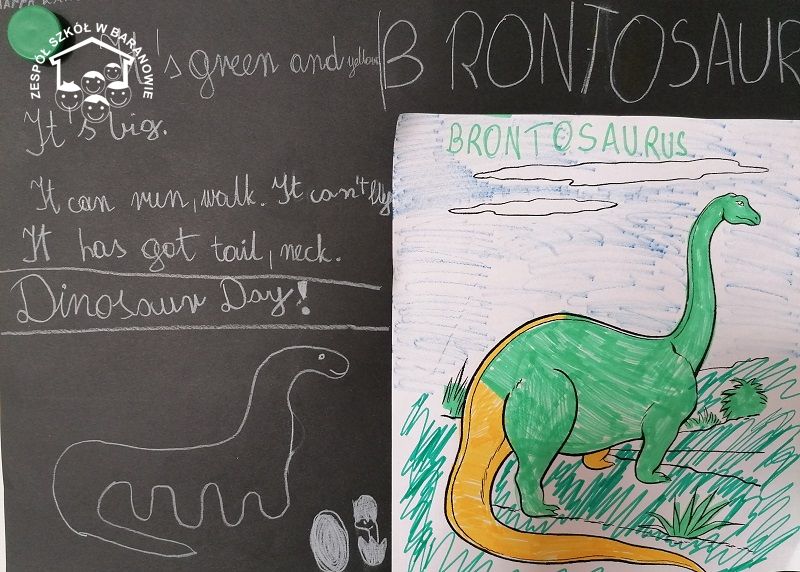 ZESPÓŁ SZKÓŁ W BARANOWIE
It's green and yellow
BRONTOSAUR
It's big.
It can run, walk. It can't fly
It has got tail, neck.
Dinosaur Day!
BRONTOSAURUS